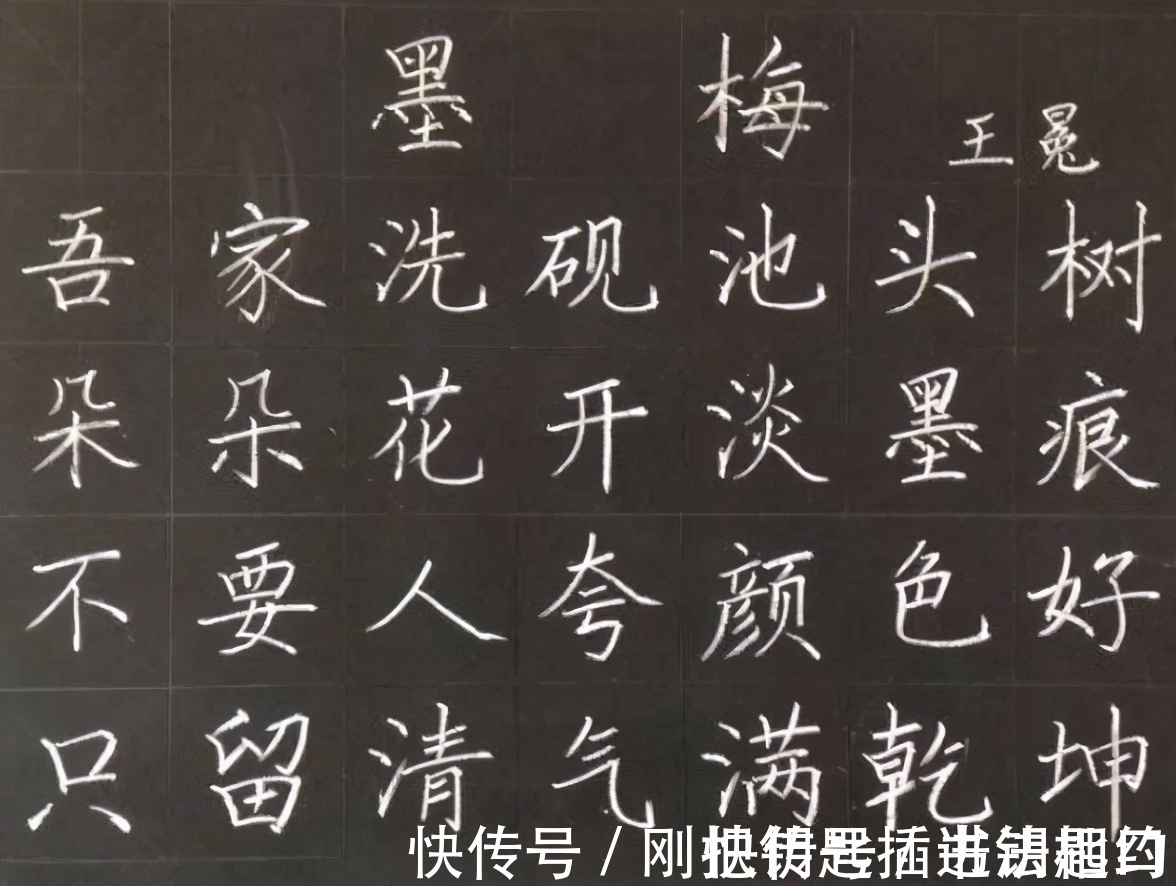 墨梅
王冕
吾家洗砚池头树
朵朵花开淡墨痕
不要人夸颜色好
只留清气满乾坤
快传号/刚